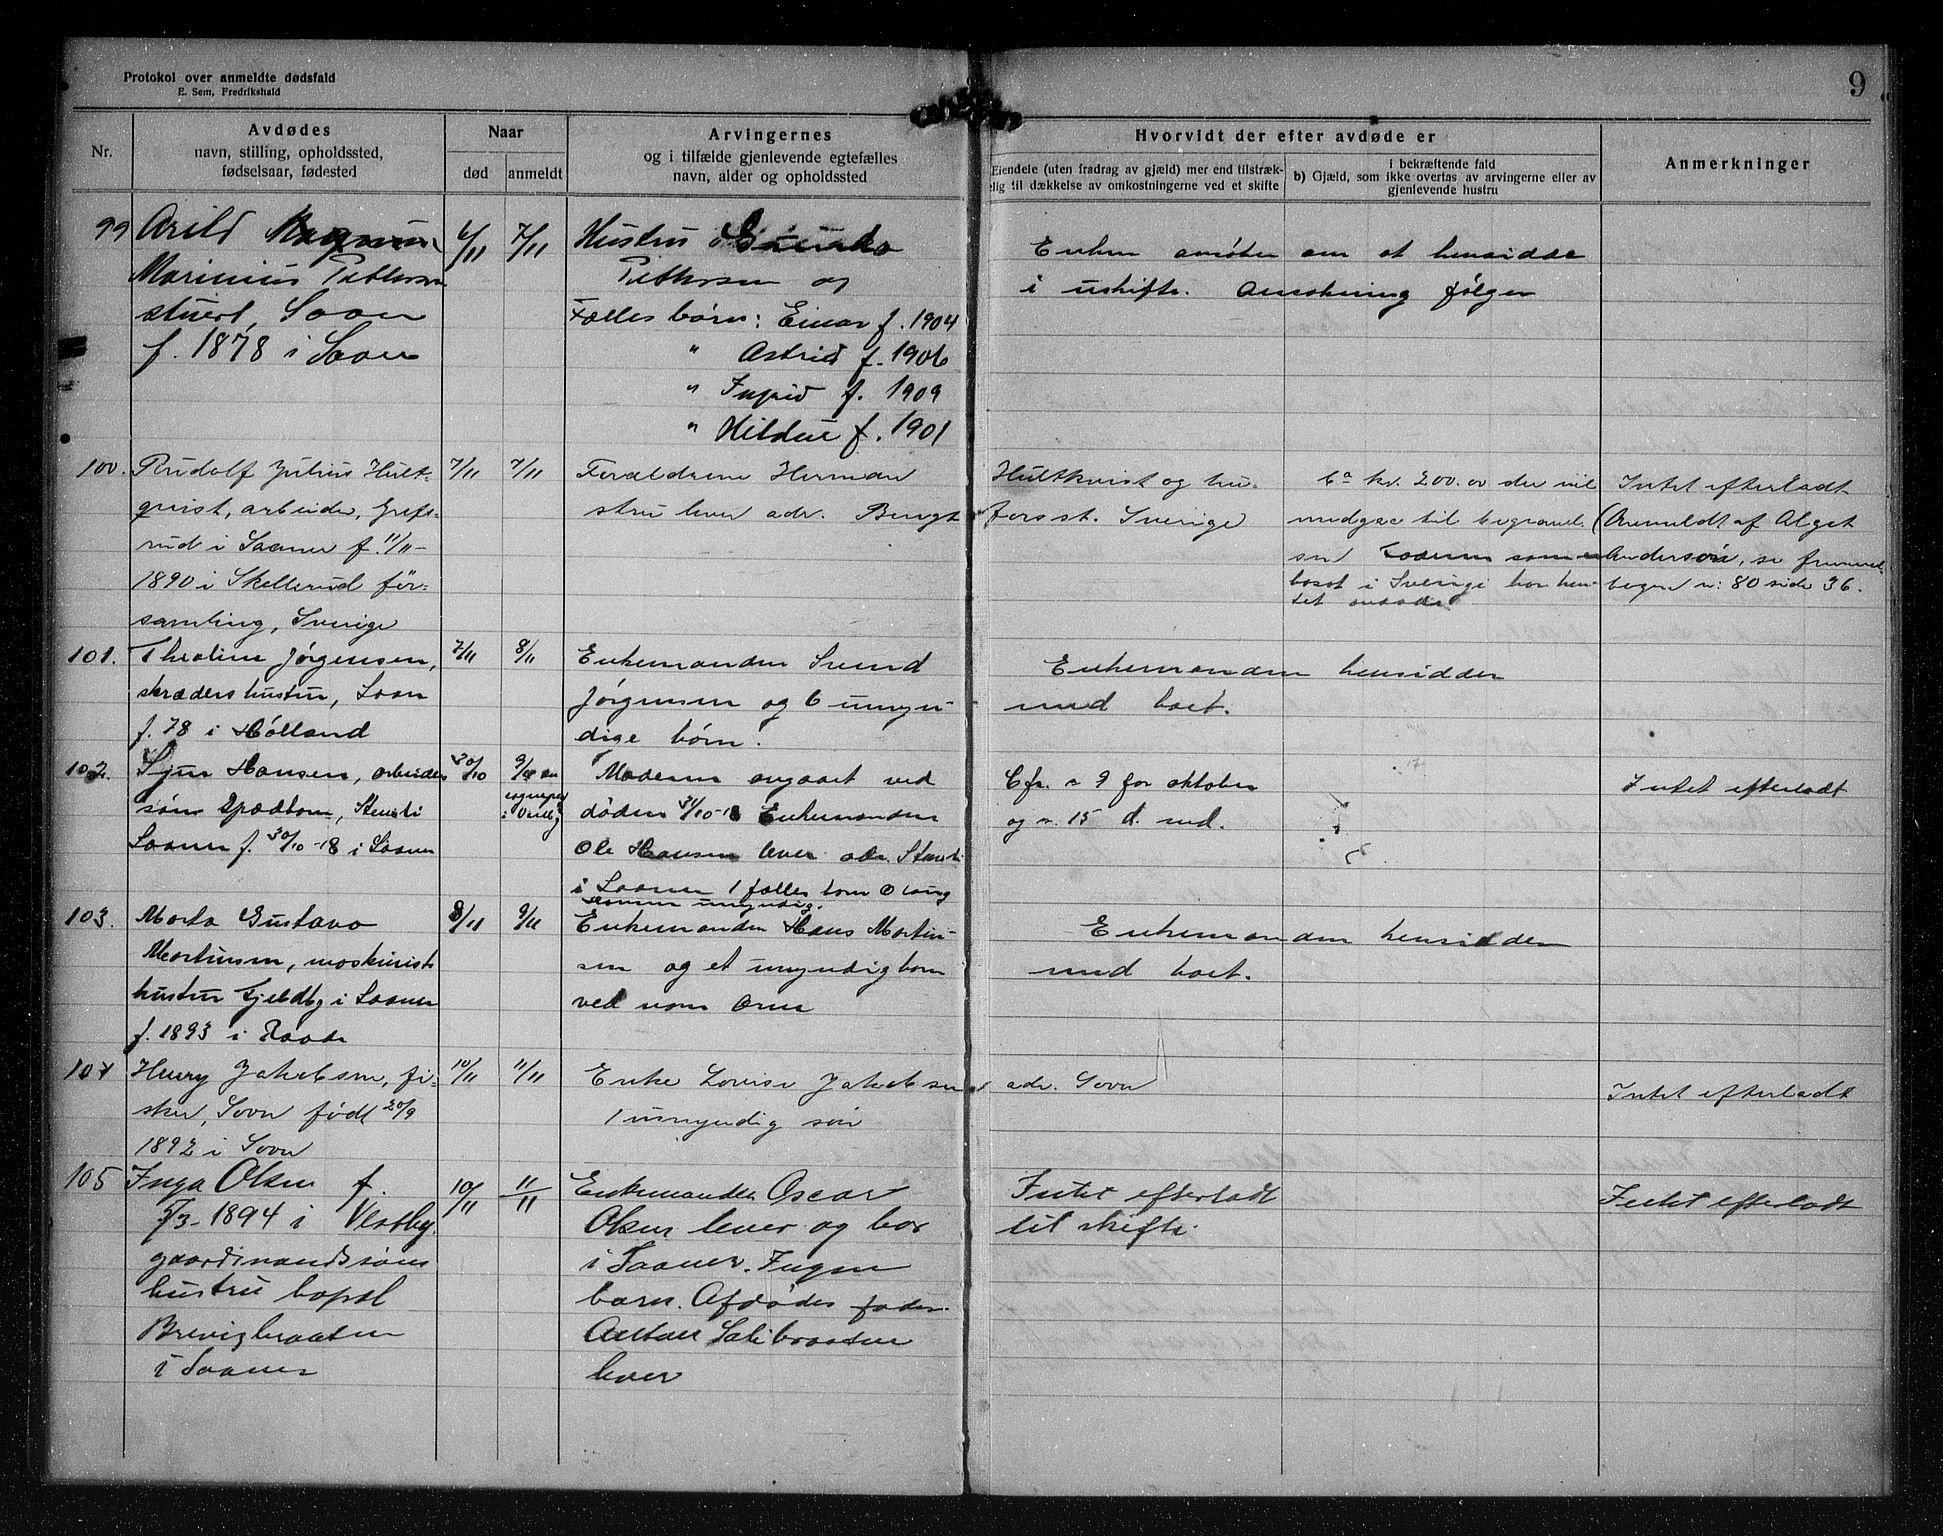 Protokol over anmeldte dødsfald
E. Sem, Fredrikshald
9
Nr.
Avdødes
navn, stilling, opholdssted,
fødselsaar, fødested
Naar
død
anmeldt
Arvingernes
og i tilfælde gjenlevende egtefælles
navn, alder og opholdssted
Hvorvidt der efter avdøde er
Eiendele (uten fradrag av gjæld) mer end tilstræk-
elig til dækkelse av omkostningerne ved et skifte
i bekræftende fald
b) Gjæld, som ikke overtas av arvingerne eller av
gjenlevende hustru
Anmerkninger
99
Arild Magnus
Marinius Pettersen
stuert, Soon
f. 1878 i Soon
6/11
7/11
Hustru
Pettersen og
Fælles børn: Einar f. 1904
" Astrid f. 1906
" Ingrid f. 1909
" Hildur f. 1901
Enken ansøker om at hensidde
i uskifte. Ansøkning følger
100.
Rudolf Julius Hult-
quist, arbeider, Grefs-
rud i Saaner f. 11/11-
1890 i Skellerud för-
samling, Sverige
7/11
7/11
Forældrene Herman
Hultkvist og hu-
stru lever adr. Bengt
forsst. Sverige
Ca kr. 200.00 der vil
medgaa til begravel
sen Faderen som er
bosat i Sverige har hen-
tet avdøde
Intet efterladt
(Anmeldt af Algot
Anderson, se
n: 80 side 36.
101.
Theoline Jørgensen,
skræders hustru, Soon
f. 78 i Høland
7/11
8/11
Enkemanden Svend
Jørgensen og 6 umyn-
dige børn.
Enkemanden hensidder
med boet.
102.
Hansen, arbeider
søn Spædbarn, Stensli
Saaner f. 30/10-18 i Saaner
30/10
9/11
Moderen avgaaet ved
døden 31/10-18 Enkemanden
Ole Hansen lever adr. Stensli
i Saaner 1 fælles barn Olaug
Hansen umyndig.
Cfr. n 9 for oktober
og n. 15 d. md.
Intet efterladt
103.
Marta Gustava
Martinsen, maskinist
hustru Gjeldby i Saaner
f. 1893 i Raade
8/11
9/11
Enkemanden Hans Martin-
sen og et umyndig barn
ved navn Arne
Enkemanden hensidder
med boet.
104
Henry Jakobsen, fi-
sker, Sovn født 20/9
1892 i Sovn
10/11
11/11
Enke Lovise Jakobsen
adr. Sovn
1 umyndig søn
Intet efterladt
105
Inga Olsen f.
7/3-1894 i Vestby.
gaardmandssøns
hustru bopæl
Brevigbraaten
i Saaner
10/11
11/11
Enkemanden Oscar
Olsen lever og bor
i Saaner. Ingen
barn. Afdødes fader
Anton Salibraaten
lever
Intet efterladt
til skifte.
Intet efterladt